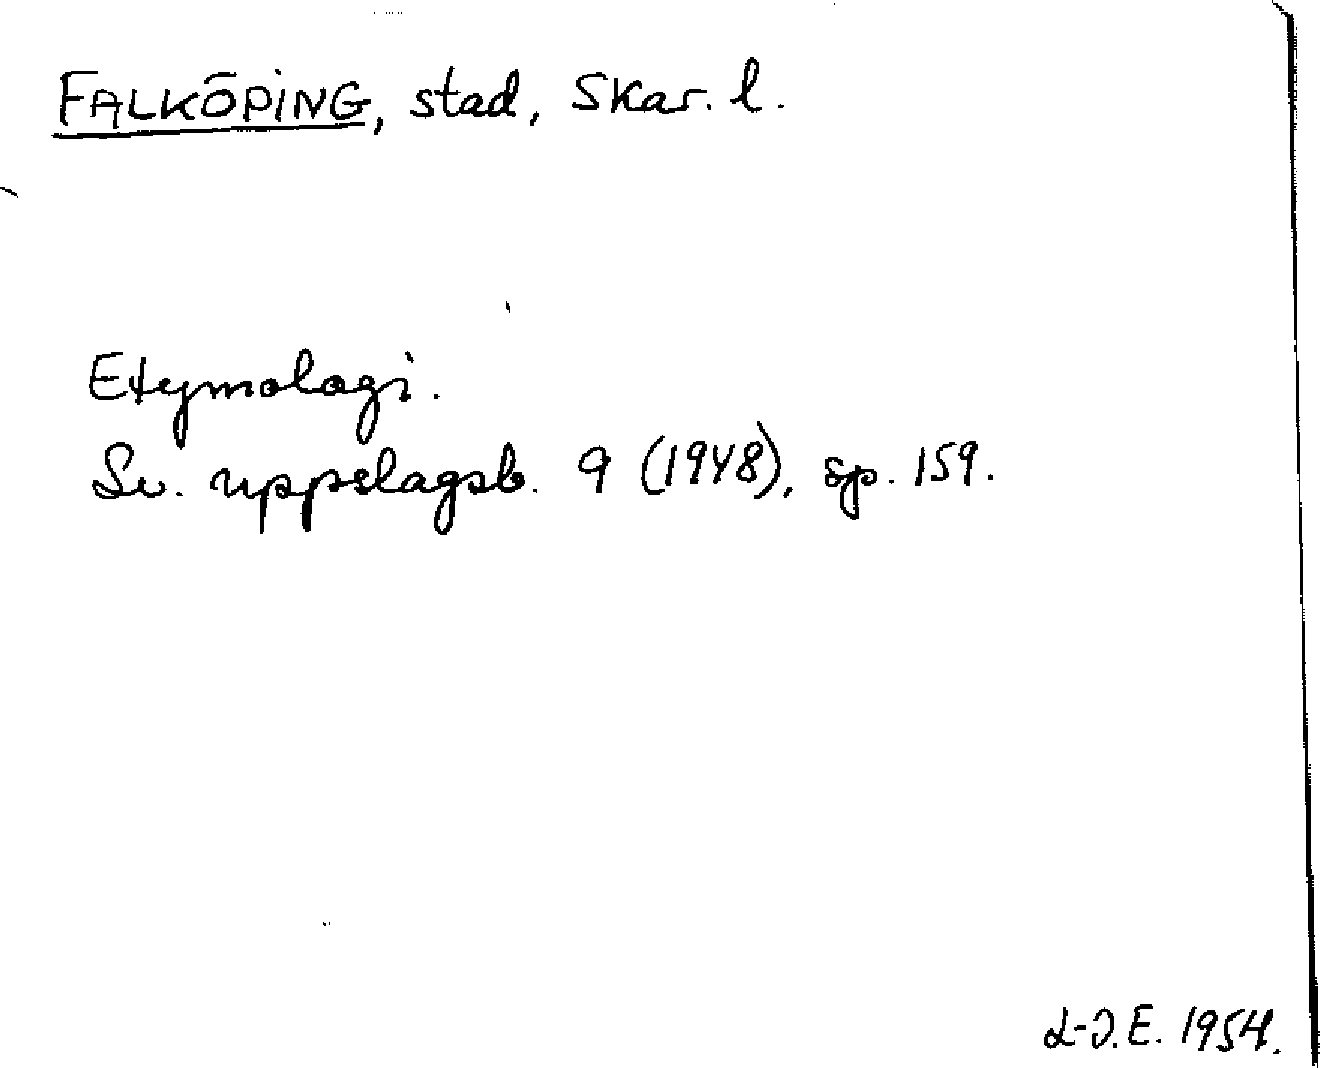 FALKÖPING, stad, Skar. l.
Etymologi.
Sv. uppslagsb. 9 (1948), sp. 159.
L-O.E. 1954.